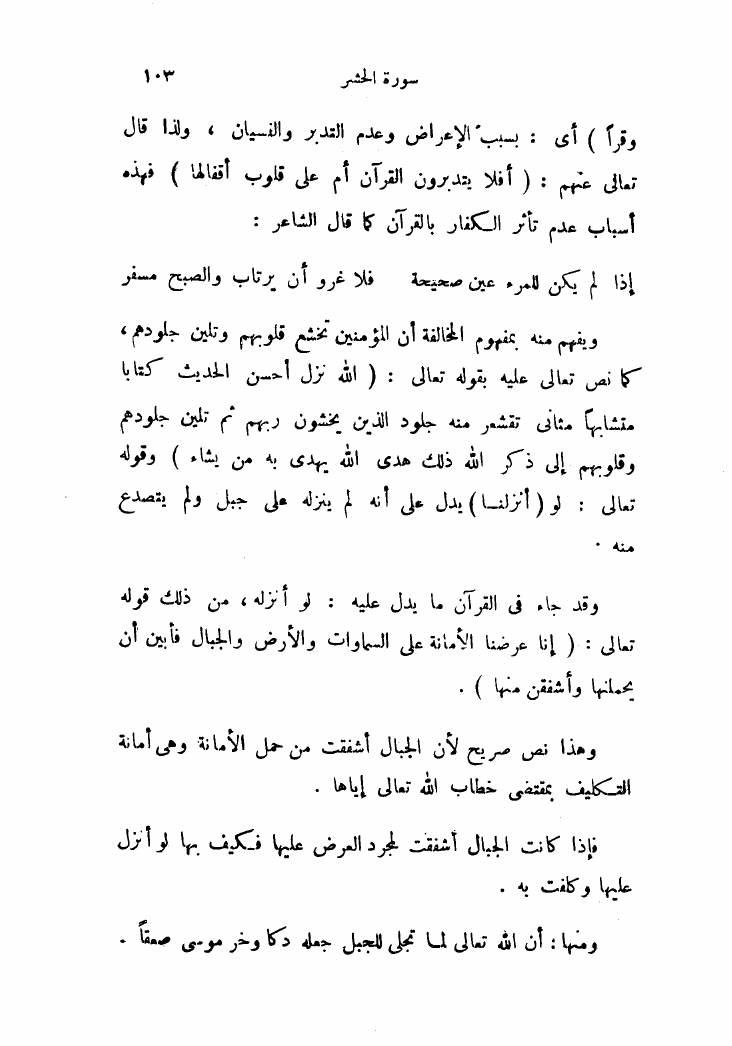 سورة الحشر ١٠٣
وقراً ) أى : بسبب الإعراض وعدم التدبر والنسيان ، ولذا قال
تعالى عنهم : ( أفلا يتدبرون القرآن أم على قلوب أقفالها ) فهذه
أسباب عدم تأثر الكفار بالقرآن كما قال الشاعر :
إذا لم يكن للمرء عين صحيحة فلا غرو أن يرتاب والصبح مسفر
ويفهم منه بمفهوم المخالفة أن المؤمنين تخشع قلوبهم وتلين جلودهم ،
كما نص تعالى عليه بقوله تعالى : ( الله نزل أحسن الحديث كتابا
متشابهاً مثانى تقشعر منه جلود الذين يخشون ربهم ثم تلين جلودهم
وقلوبهم إلى ذكر الله ذلك هدى الله يهدى به من يشاء ) وقوله
تعالى : لو ( أنزلنـا ) يدل على أنه لم ينزله على جبل ولم يتصدع
منه .
وقد جاء فى القرآن ما يدل عليه : لو أنزله ، من ذلك قوله
تعالى : ( إنا عرضنا الأمانة على السماوات والأرض والجبال فأبين أن
يحملنها وأشفقن منها ) .
وهذا نص صريح لأن الجبال أشفقت من حمل الأمانة وهى أمانة
التكليف بمقتضى خطاب الله تعالى إياها .
فإذا كانت الجبال أشفقت لمجرد العرض عليها فكيف بها لو أنزل
عليها وكلفت به .
ومنها : أن الله تعالى لما تجلى للجبل جعله دكا وخر موسى صعقاً .